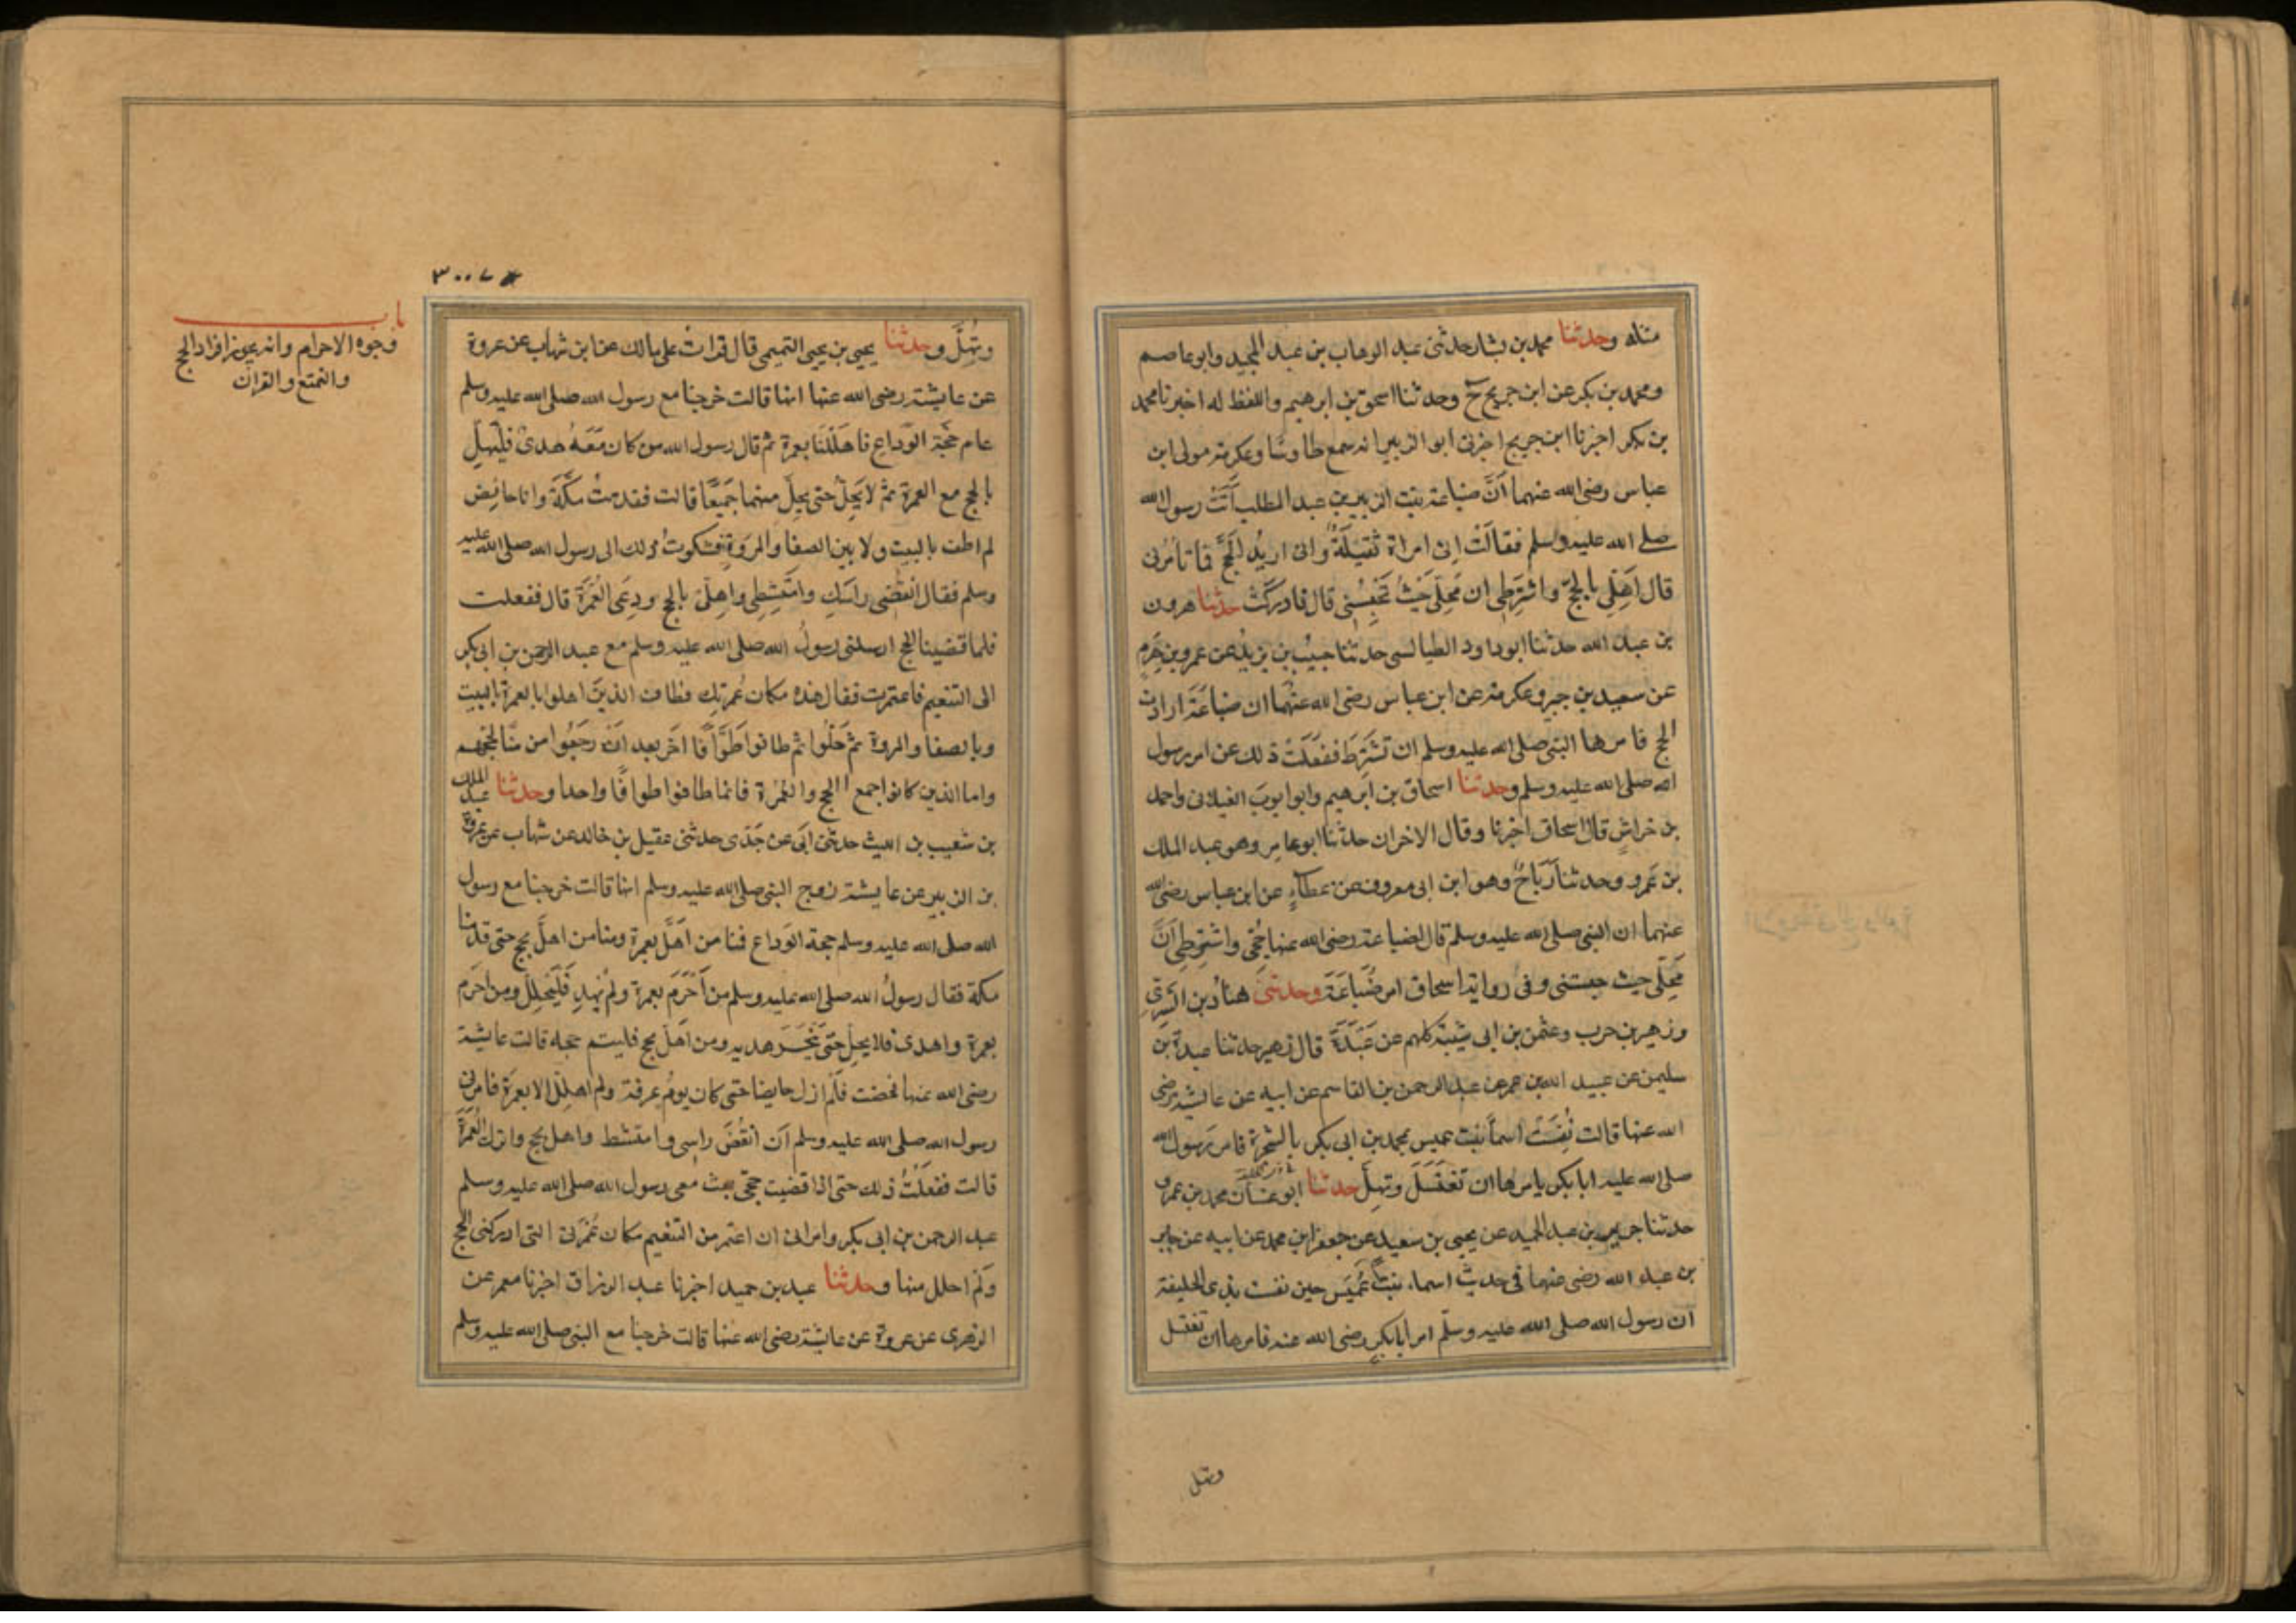 مثله وحدثنا محمد بن بشار حدثنى عبد الوهاب بن عبد المجيد وابو عاصم
ومحمد بن بكر عن ابن جريج ح وحدثنا اسحق بن ابرهيم واللفظ له اخبرنا محمد
بن بكر اخبرنا ابن جريج اخبرنى ابو الزبير انه سمع طاوسًا وعكرمة مولى ابن
عباس رضى الله عنهما اَنَّ ضباعة بنت الزبير بن عبد المطلب اَتَتْ رسول الله
صلى الله عليه وسلم فقالَتْ اِنى امراة ثَقيلَةٌ وانى اريدُ الحَجَّ فما تأمُرنى
قال اَهِلّى بالحجّ واشْتَرِطِى ان مَحِلّى حَيْثُ تَحْبِسُنِى قال فادركَتْ حدثنا هرون
بن عبد الله حدثنا ابو داود الطيالسى حدثنا حبيب بن يزيد عن عمرو بن هَرِم
عن سعيد بن جبير وعكرمة عن ابن عباس رضى الله عنهما ان ضباعَةَ ارادت
الحج فامرها النبى صلى الله عليه وسلم ان تشتَرِطَ ففعَلَتْ ذلك عن امر رسول
الله صلى الله عليه وسلم وحدثنا اسحاق بن ابرهيم وابو ايوبَ الغيلانى واحمد
بن خراشٍ قال اسحاق اخبرنا وقال الاخران حدثنا ابو عامر وهو عبد الملك
بن عَمرو وحدثنا رَبَاحٌ وهو ابن ابى معروف عن عطاءٍ عن ابن عباس رضى الله
عنهما ان النبى صلى الله عليه وسلم قال لضباعة رضى الله عنها حُجّى واشترطى اَنَّ
مَحِلّى حيث حبستنى وفى رواية اسحاق امر ضُبَاعَةَ وحدثنى هنادُ بن السَّرِىّ
وزهير بن حرب وعثمن بن ابى شيبة كلهم عن عَبْدَةَ قال زهير حدثنا عبدة بن
سليمن عن عبيد الله بن عمر عن عبد الرحمن بن القاسم عن ابيه عن عائشة رضى
الله عنها قالت نُفِسَتْ اسماءُ بنت عميس بمحمد بن ابى بكر بالشجرة فامر رسول الله
صلى الله عليه ابا بكر يامرها ان تغتَسَلَ وتهلّ حدثنا ابو غسان محمد بن عمرو
حدثنا جرير بن عبد الحميد عن يحيى بن سعيد عن جعفر ابن محمد عن ابيه عن جابر
بن عبد الله رضى عنهما فى حديث اسماء بنت عُمَيس حين نفست بذى الحليفة
ان رسول الله صلى الله عليه وسلّم امر ابا بكرٍ رضى الله عنه فامرها ان تغتسل
وتهل
٣٠٠٧
باب
وجوه الاحرام وانه يجوز افراد الحج
والتمتع والقران
وتُهِلَّ وحدثنا يحيى بن يحيى التميمى قال قرات على مالك عن ابن شهاب عن عروة
عن عايشة رضى الله عنها انها قالت خرجنا مع رسول الله صلى الله عليه وسلم
عام حَجّة الوَدَاعِ فاهللنا بعمرة ثم قال رسول الله من كان مَعَهُ هدىٌ فليُهِلِّ
بالحج مع العمرة ثم لا يَحِلّ حتى يحلّ منهما جَمِيعًا قالت فقدمتُ مكَّةَ وانا حائِض
لم اطف بالبيت ولا بين الصفا والمَروَةِ فشكوتُ ذلك الى رسول الله صلى الله عليه
وسلم فقال انْقُضِى راسَكِ وامْتَشِطِى واهِلّى بالحج ودَعِى العُمْرَةَ قال ففعلت
فلما قضينا الحج ارسلنى رسولُ الله صلى الله عليه وسلم مع عبد الرحمن بن ابى بكر
الى التنعيم فاعتمرت فقال هذه مكان عُمرتك فطاف الذينَ اهلوا بالعمرة بالبيت
وبالصفا والمروة ثم حَلّوا ثم طافوا طَوَافًا اخَرَ بعد اَنْ رَجَعُوا من منًا لحجهم
واما الذين كانوا جمع الحج والعُمْرَة فانما طافوا طوافًا واحدا وحدثنا عبد الملك
بن شعيب بن الليث حدثنى ابى عن جَدّى حدثنى عقيل بن خالد عن شهاب عن عروة
بن الزبير عن عايشة زوج النبى صلى الله عليه وسلم انها قالت خرجنا مع رسول
الله صلى الله عليه وسلم حجة الوَداع فمنا من اَهَلَّ بعمرة ومنا من اهلّ بحج حتى قدمنا
مكة فقال رسولُ الله صلى الله عليه وسلم من اَحْرَمَ بعمرة ولم يُهدِ فَلْيَحْلِلْ ومن احرَم
بعمرة واهدى فلا يحل حتى يَنْحَرَ هديه ومن اَهَلَّ بحج فليتم حجه قالت عايشة
رضى الله عنها فحضت فلَمْ ازل حايضا حتى كان يومُ عرفة ولم اهلِل الا بعمرَة فامرنى
رسول الله صلى الله عليه وسلم اَن انقُضَ راسى وامتشط واهل بحج واترك العُمْرَةَ
قالت ففعَلْتُ ذلك حتى اذا قضيت حجى بعث معى رسول الله صلى الله عليه وسلم
عبد الرحمن بن ابى بكر وامرانى ان اعتمر من التنعيم مكان عُمْرَتى التى ادركنى الحج
وَلَمْ احلل منها وحدثنا عبد بن حميد اخبرنا عبد الرزاق اخبرنا معمر عن
الزهرى عن عروة عن عائشة رضى الله عنها قالت خرجنا مع النبى صلى الله عليه وسلم